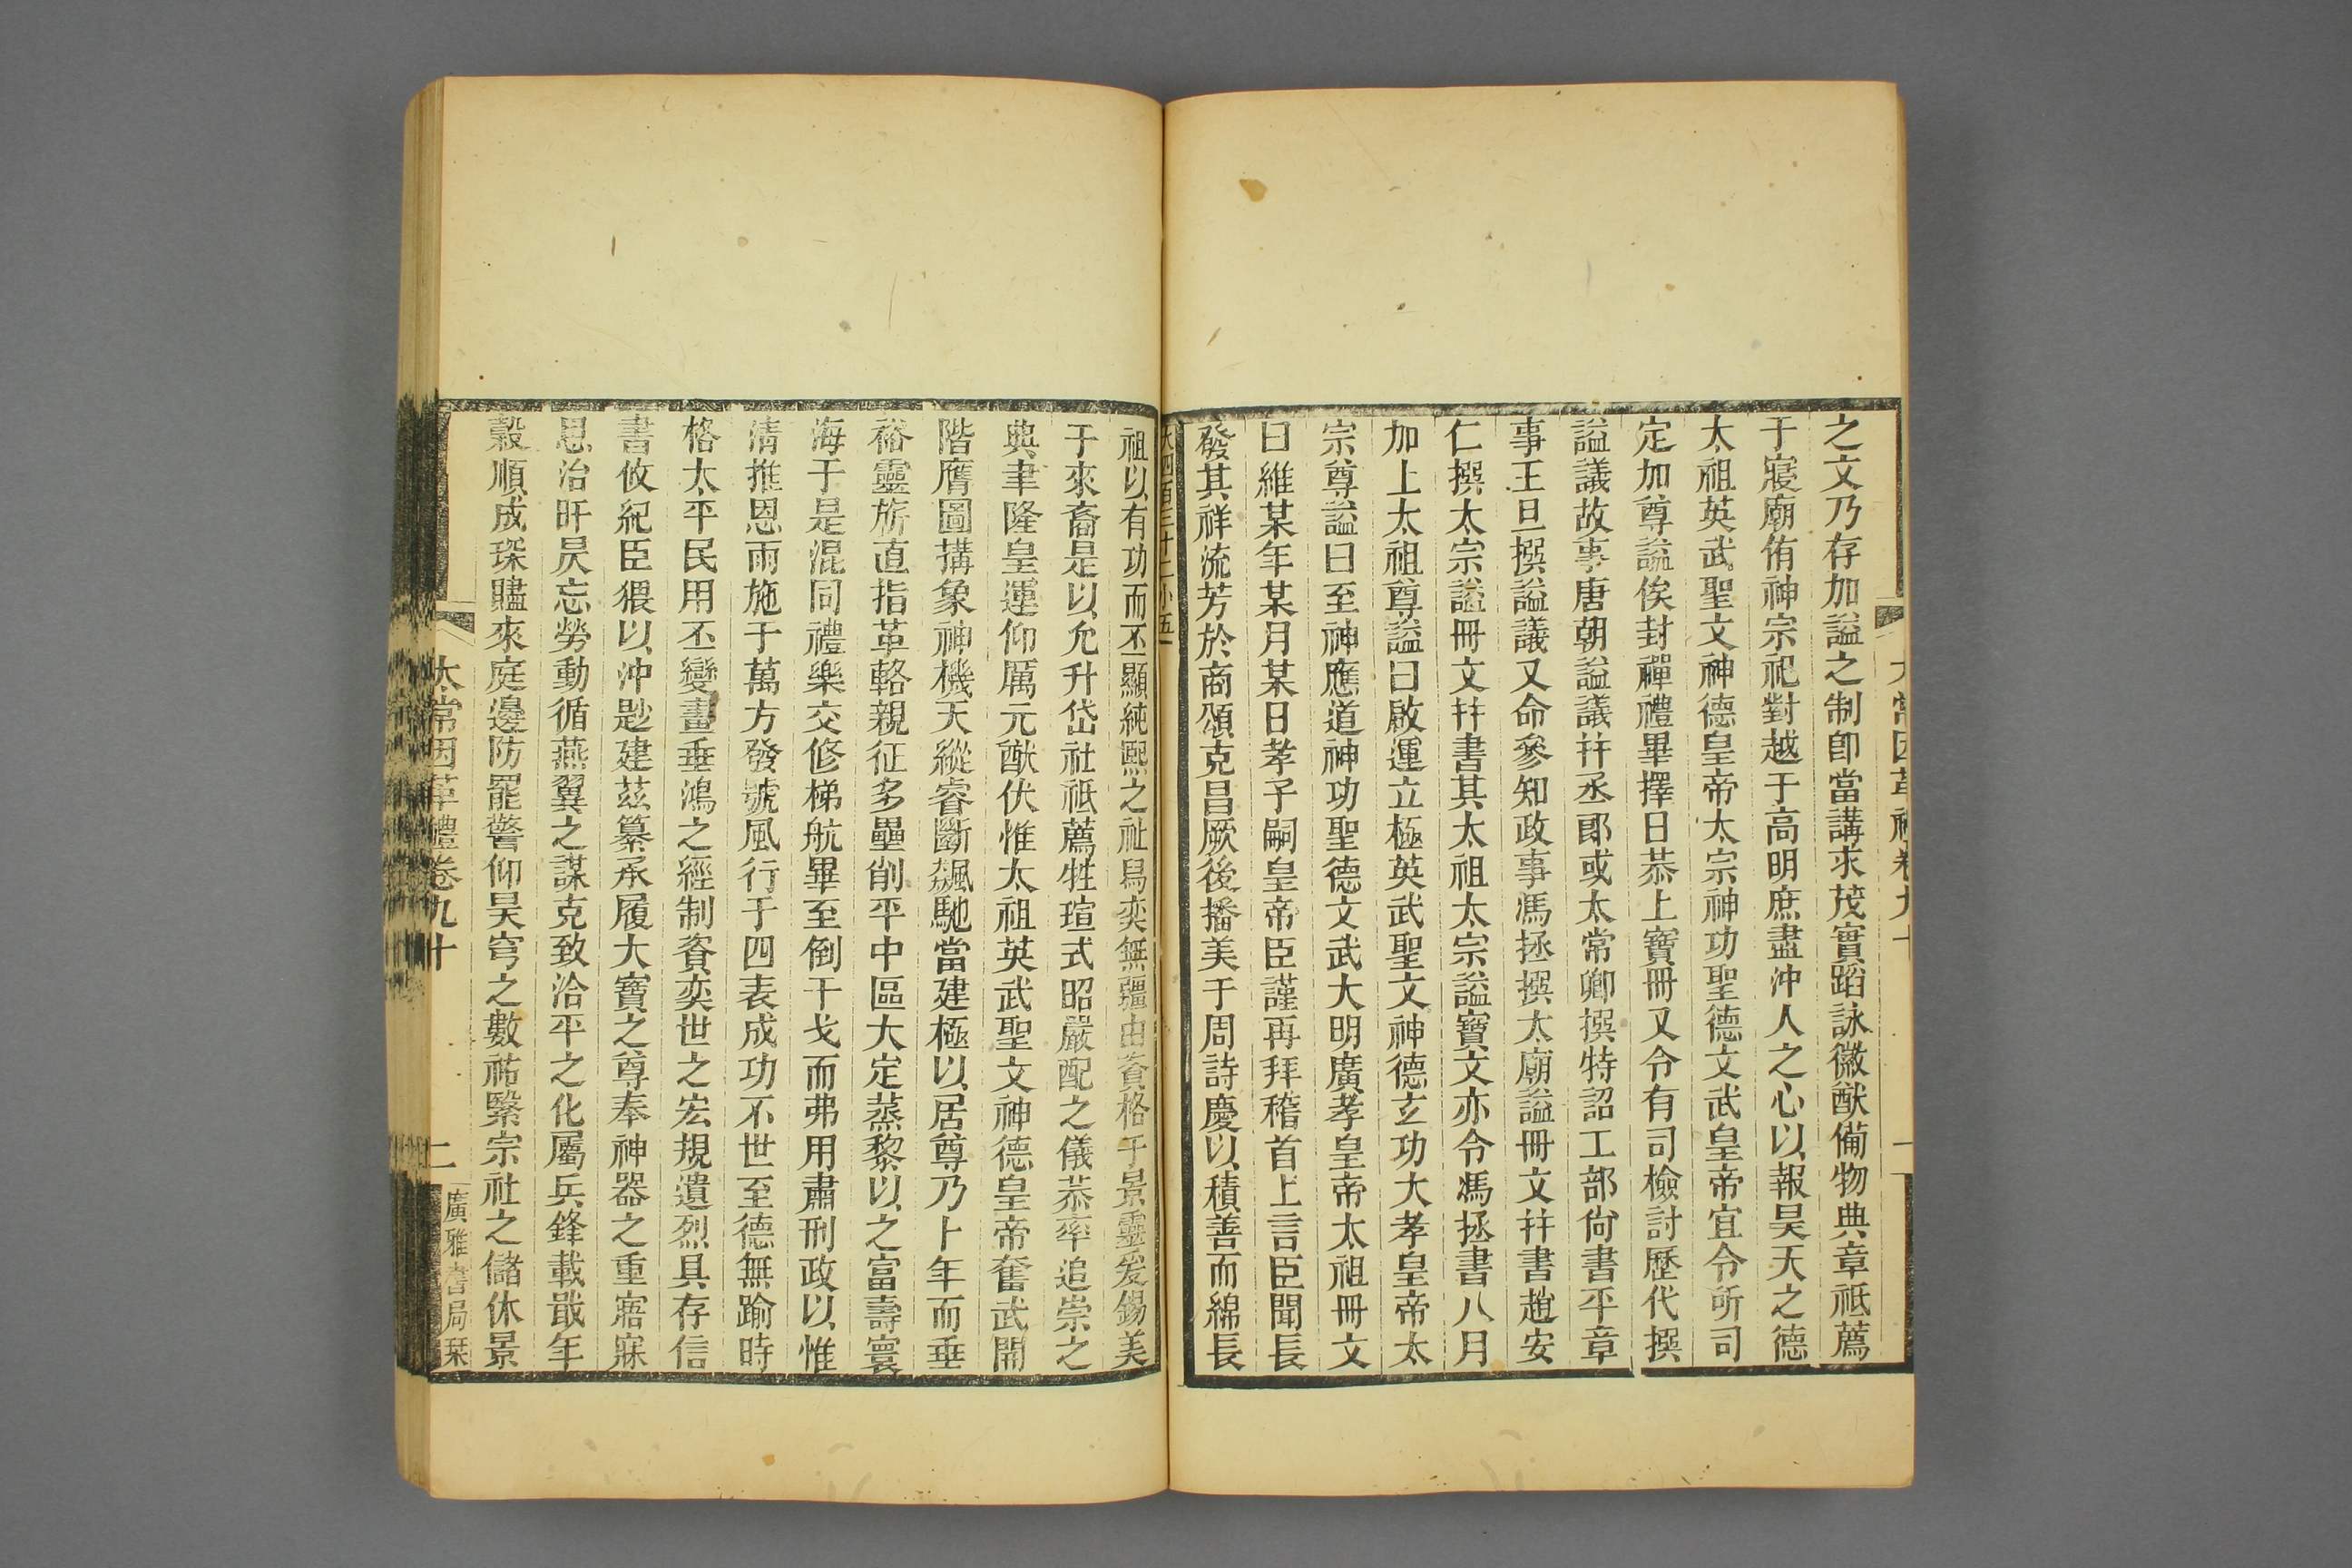 太常因革禮卷九十
一
之文乃存加謚之制卽當講求茂實蹈詠徽猷備物典章祗薦
于寢廟侑神宗祀對越于高明庶盡沖人之心以報昊天之德
太祖英武聖文神德皇帝太宗神功聖德文武皇帝宜令所司
定加尊謚俟封禪禮畢擇日恭上寶冊又令有司檢討歷代撰
謚議故事唐朝謚議幷丞郎或太常卿撰特詔工部尙書平章
事王旦撰謚議又命參知政事馮拯撰太廟謚冊文幷書趙安
仁撰太宗謚冊文幷書其太祖太宗謚寶文亦令馮拯書八月
加上太祖尊謚曰啟運立極英武聖文神德玄功大孝皇帝太
宗尊謚曰至神應道神功聖德文武大明廣孝皇帝太祖冊文
曰維某年某月某日孝子嗣皇帝臣謹再拜稽首上言臣聞長
發其祥流芳於商頌克昌厥後播美于周詩慶以積善而綿長
大四百三十二小五
祖以有功而丕顯純熙之祉舄奕無疆由賓格于景靈爰錫美
于來裔是以允升岱社祗薦牲瑄式昭嚴配之儀恭率追崇之
典聿隆皇運仰厲元猷伏惟太祖英武聖文神德皇帝奮武開
階膺圖搆象神機天縱睿斷飆馳當建極以居尊乃卜年而垂
裕靈旂直指革輅親征多壘削平中區大定蒸黎以之富壽寰
海于是混同禮樂交修梯航畢至倒干戈而弗用肅刑政以惟
淸推恩雨施于萬方發號風行于四表成功不世至德無踰時
格太平民用丕變畫垂鴻之經制賓奕世之宏規遺烈具存信
書攸紀臣猥以沖尟建茲纂承履大寶之尊奉神器之重寤寐
思治旰昃忘勞動循燕翼之謀克致洽平之化屬兵鋒載戢年
穀順成琛贐來庭邊防罷警仰昊穹之數祐緊宗社之儲休景
太常因革禮卷九十
二
廣雅書局栞